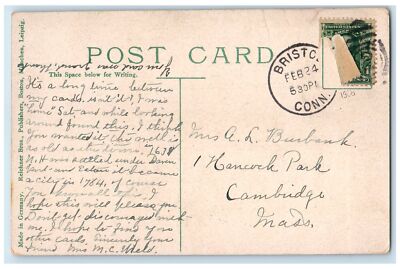 POST CARD
This Space below for Writing.
Made in Germany. Reichner Bros., Publishers, Boston, Muenchen, Leipzig.
BRISTOL
FEB 24
530P
CONN.
It's a long time between
my cards isn't it? I was
"home" Sat. and while looking
around found this, I think
you wanted it, the well is
as old as the town. "1638
N. H. was settled under Daven
port and Eaton it became
a city in 1784, of course
you know all this. I
hope this will please you.
Don't get discouraged with
me, I hope to find you
other cards. Sincerely your
friend Mrs M. C. Weld.
Mrs A. L. Burbank.
1 Hancock Park
Cambridge
Mass.